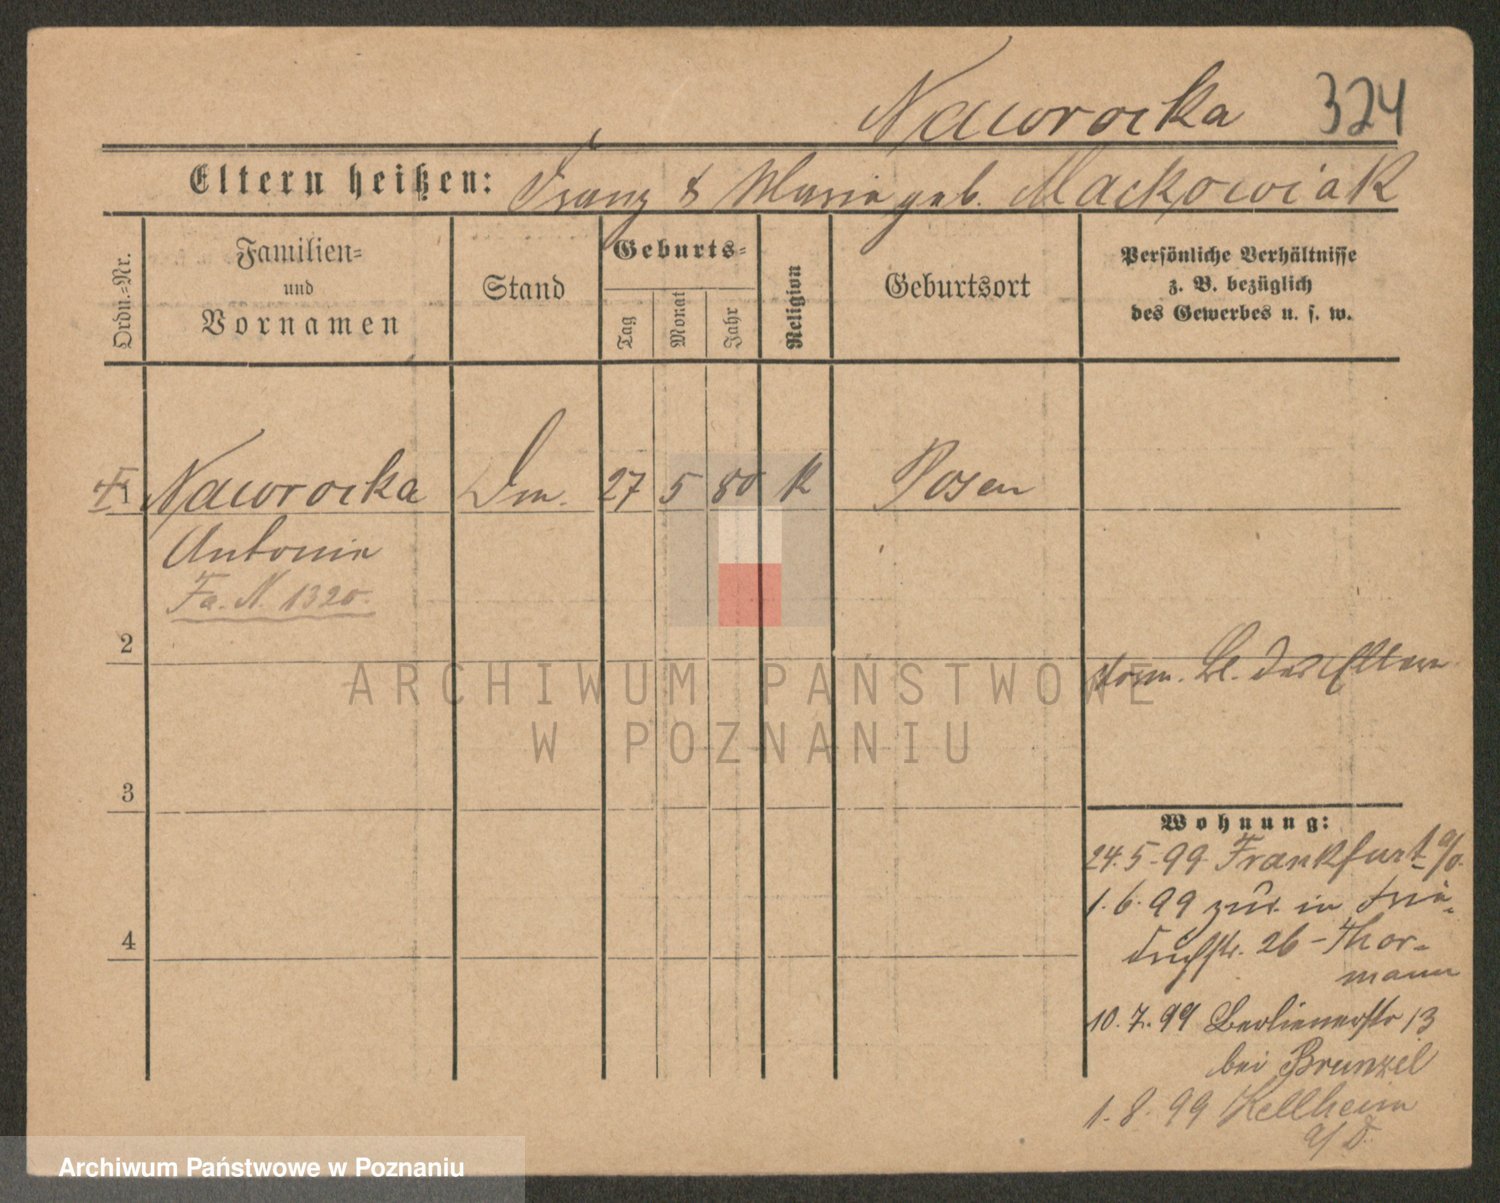 Nawrocka 324
Eltern heißen: Franz & Marie geb. Mackowiak
Ordn.-Nr.
Familien-
und
Vornamen
Stand
Geburts-
Tag
Monat
Jahr
Religion
Geburtsort
Persönliche Verhältnisse
z. B. bezüglich
des Gewerbes u. s. w.
1 Nawrocka 27 5 80 K Posen
Antonie
Fa. N. 1320.
2
vorm. Bl. der Eltern
3
Wohnung:
24.5.99 Frankfurt a/O.
1.6.99 zur. in Frie-
drichstr. 26 - Thor-
mann
4
10.7.99 Berlinerstr 13
bei Brunzel
1.8.99 Kellheim
a/D.
ARCHIWUM PAŃSTWOWE
W POZNANIU
Archiwum Państwowe w Poznaniu